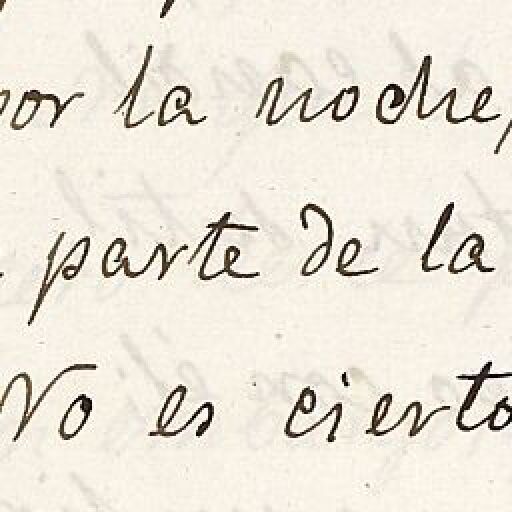 por la noche,
parte de la
No es cierto